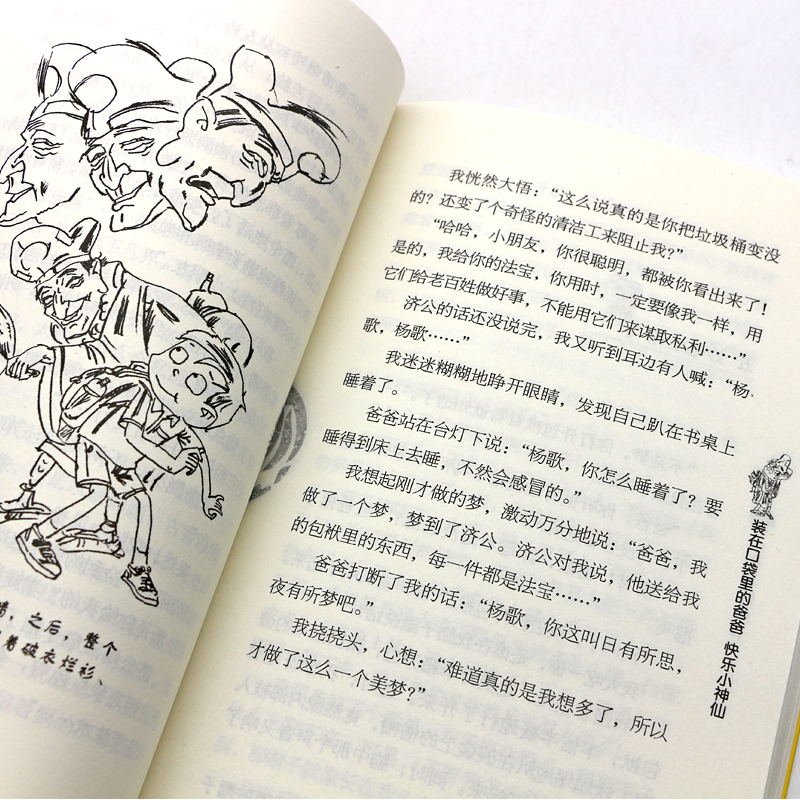 睛，之后，整个
着破衣烂衫、
我恍然大悟：“这么说真的是你把垃圾桶变没
的？还变了个奇怪的清洁工来阻止我？”
“哈哈，小朋友，你很聪明，都被你看出来了！
是的，我给你的法宝，你用时，一定要像我一样，用
它们给老百姓做好事，不能用它们来谋取私利……”
济公的话还没说完，我又听到耳边有人喊：“杨
歌，杨歌……”
我迷迷糊糊地睁开眼睛，发现自己趴在书桌上
睡着了。
爸爸站在台灯下说：“杨歌，你怎么睡着了？要
睡得到床上去睡，不然会感冒的。”
我想起刚才做的梦，激动万分地说：“爸爸，我
做了一个梦，梦到了济公。济公对我说，他送给我
的包袱里的东西，每一件都是法宝……”
爸爸打断了我的话：“杨歌，你这叫日有所思，
夜有所梦吧。”
我挠挠头，心想：“难道真的是我想多了，所以
才做了这么一个美梦？”
装在口袋里的爸爸 快乐小神仙